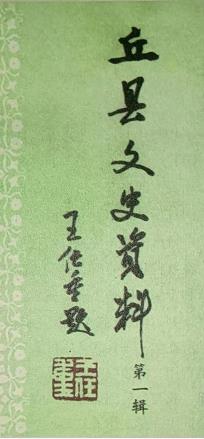 丘县文史资料
第一辑
王任重题